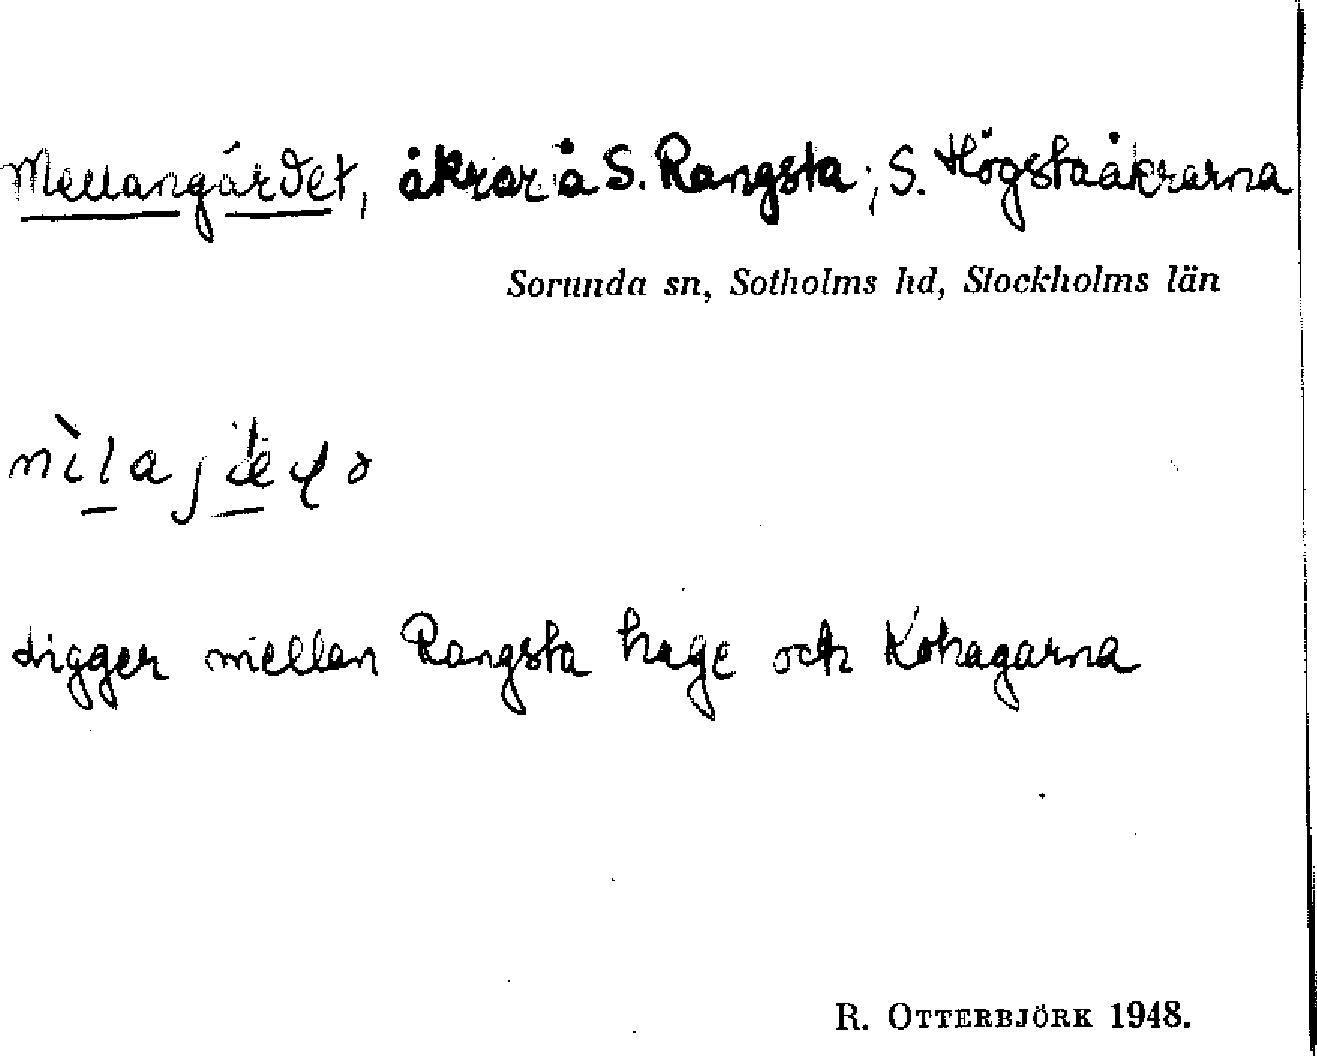 Mellangärdet, åkrar å S. Rangsta; S. Högstaåkrarna
Sorunda sn, Sotholms hd, Stockholms län
ligger mellan Rangsta hage och Kohagarna
R. OTTERBJÖRK 1948.